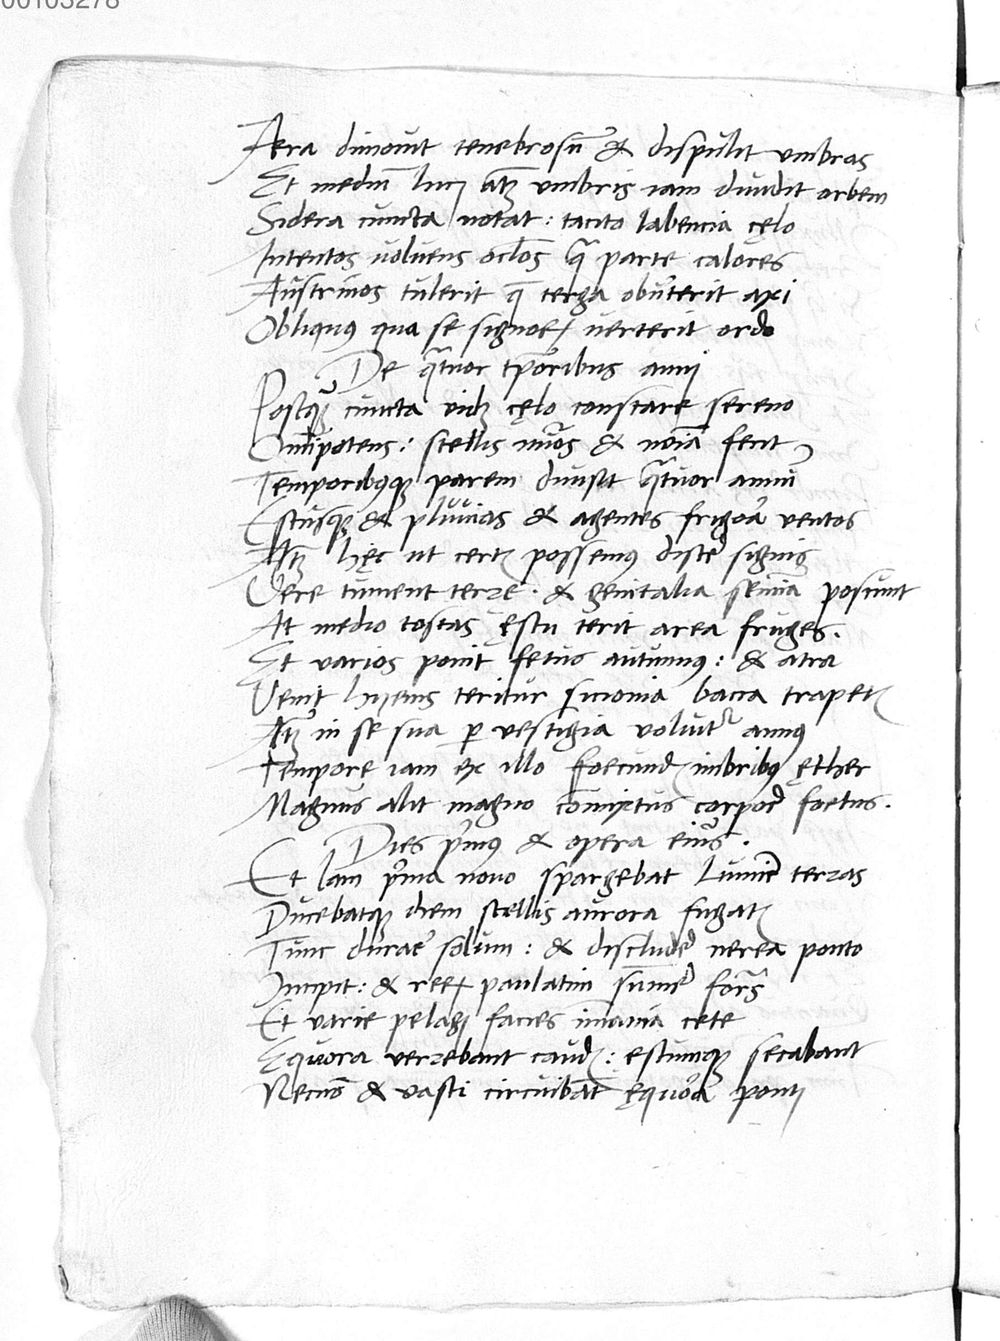 00103278
Aera dimouit tenebrosū & dispulit vmbras
Et mediū luci atꝫ vmbris iam diuidit orbem
Sidera cuncta notat: tacito labencia cęlo
Intentos voluens oclōs qͣ parte calores
Austrinos tulerit q̄ terga obuterit axi
Obliquꝰ qua se signoꝝ verterit ordo
De qͣtuor tp̄oribus anni
Postqͣꝫ cuncta vidꝫ cęlo constare sereno
Omīpotens: stellis nuōs & noīa fecit
Temporibꝰqꝫ parem diuisit qͣtuor annū
Estusqꝫ & pluuias & agentes frigoͣ ventos
Atꝫ hęc ut certis possemꝰ discē signis
Vere tument terre. & genitalia semīa poscunt
At medio tostas ęstu terit area fruges.
Et varios ponit fetus autumnꝰ: & atra
Venit hyems teritur sicionia baca trapetis
Atꝫ in se sua ꝑ vestigia voluitͬ annꝰ
Tempore iam ex illo foecundis imbribꝰ ęther
Magnus alit magno com̄ixtus corpoē foetus.
Dies pͥmꝰ & opera eiꝰ.
Et Iam pͥma nouo spargebat Lumiē terras
Ducebatqꝫ diem stellis aurora fugatis
Tunc duraē solum: & discludē nerea ponto
Incipit: & reꝝ paulatim sumē for̄s
Et varie pelagi facies im̄ania cete
Equora verrebant caudis: estumqꝫ secabant
Necnō & vasti circuibāt ęquoͣa ponti